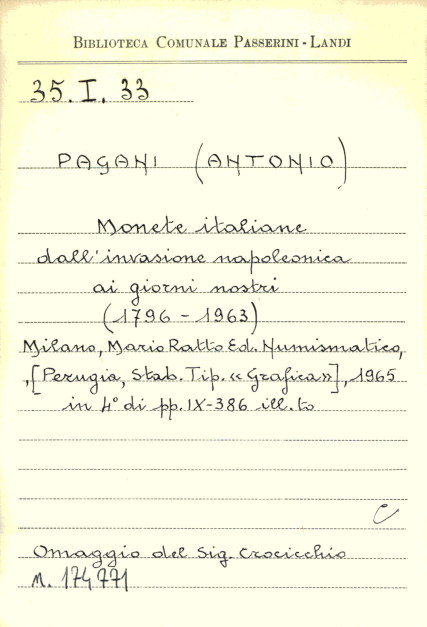 BIBLIOTECA COMUNALE PASSERINI - LANDI
35. I. 33
PAGANI (ANTONIO)
Monete italiane
dall'invasione napoleonica
ai giorni nostri
(1796 - 1963)
Milano, Mario Ratto Ed. Numismatico,
,[Perugia, Stab. Tip. «Grafica»], 1965
in 4° di pp. IX-386 ill.to
C
Omaggio del Sig. Crocicchio
N. 174771